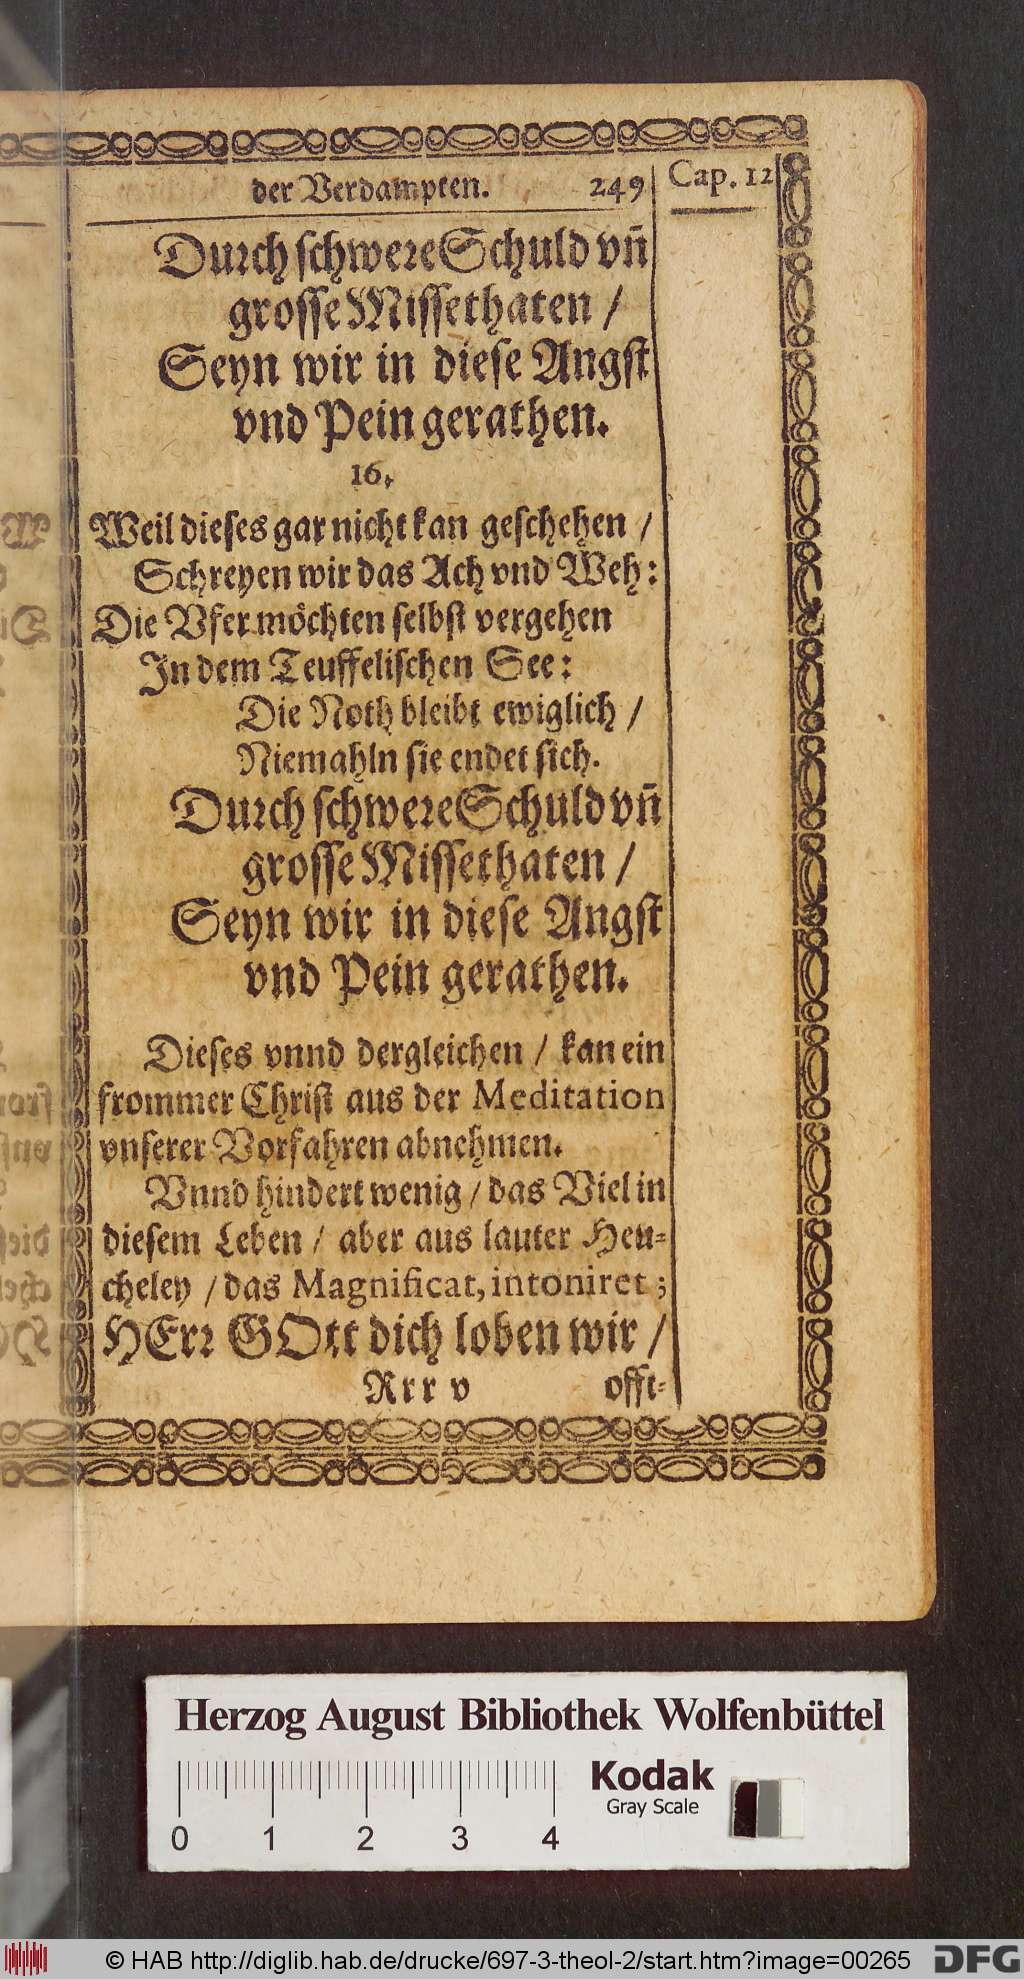 der Verdampten. 249 Cap. 12
Durch schwere Schuld vñ
grosse Missethaten /
Seyn wir in diese Angst
vnd Pein gerathen.
16.
Weil dieses gar nicht kan geschehen /
Schreyen wir das Ach vnd Weh:
Die Vfer möchten selbst vergehen
In dem Teuffelischen See:
Die Noth bleibt ewiglich /
Niemahln sie endet sich.
Durch schwere Schuld vñ
grosse Missethaten /
Seyn wir in diese Angst
vnd Pein gerathen.
Dieses vnnd dergleichen / kan ein
frommer Christ aus der Meditation
vnserer Vorfahren abnehmen.
Vnnd hindert wenig / das Viel in
diesem Leben / aber aus lauter Heu-
cheley / das Magnificat, intoniret;
HErr GOtt dich loben wir /
Rrr v offt-
Herzog August Bibliothek Wolfenbüttel
Kodak
Gray Scale
0 1 2 3 4
© HAB http://diglib.hab.de/drucke/697-3-theol-2/start.htm?image=00265
DFG